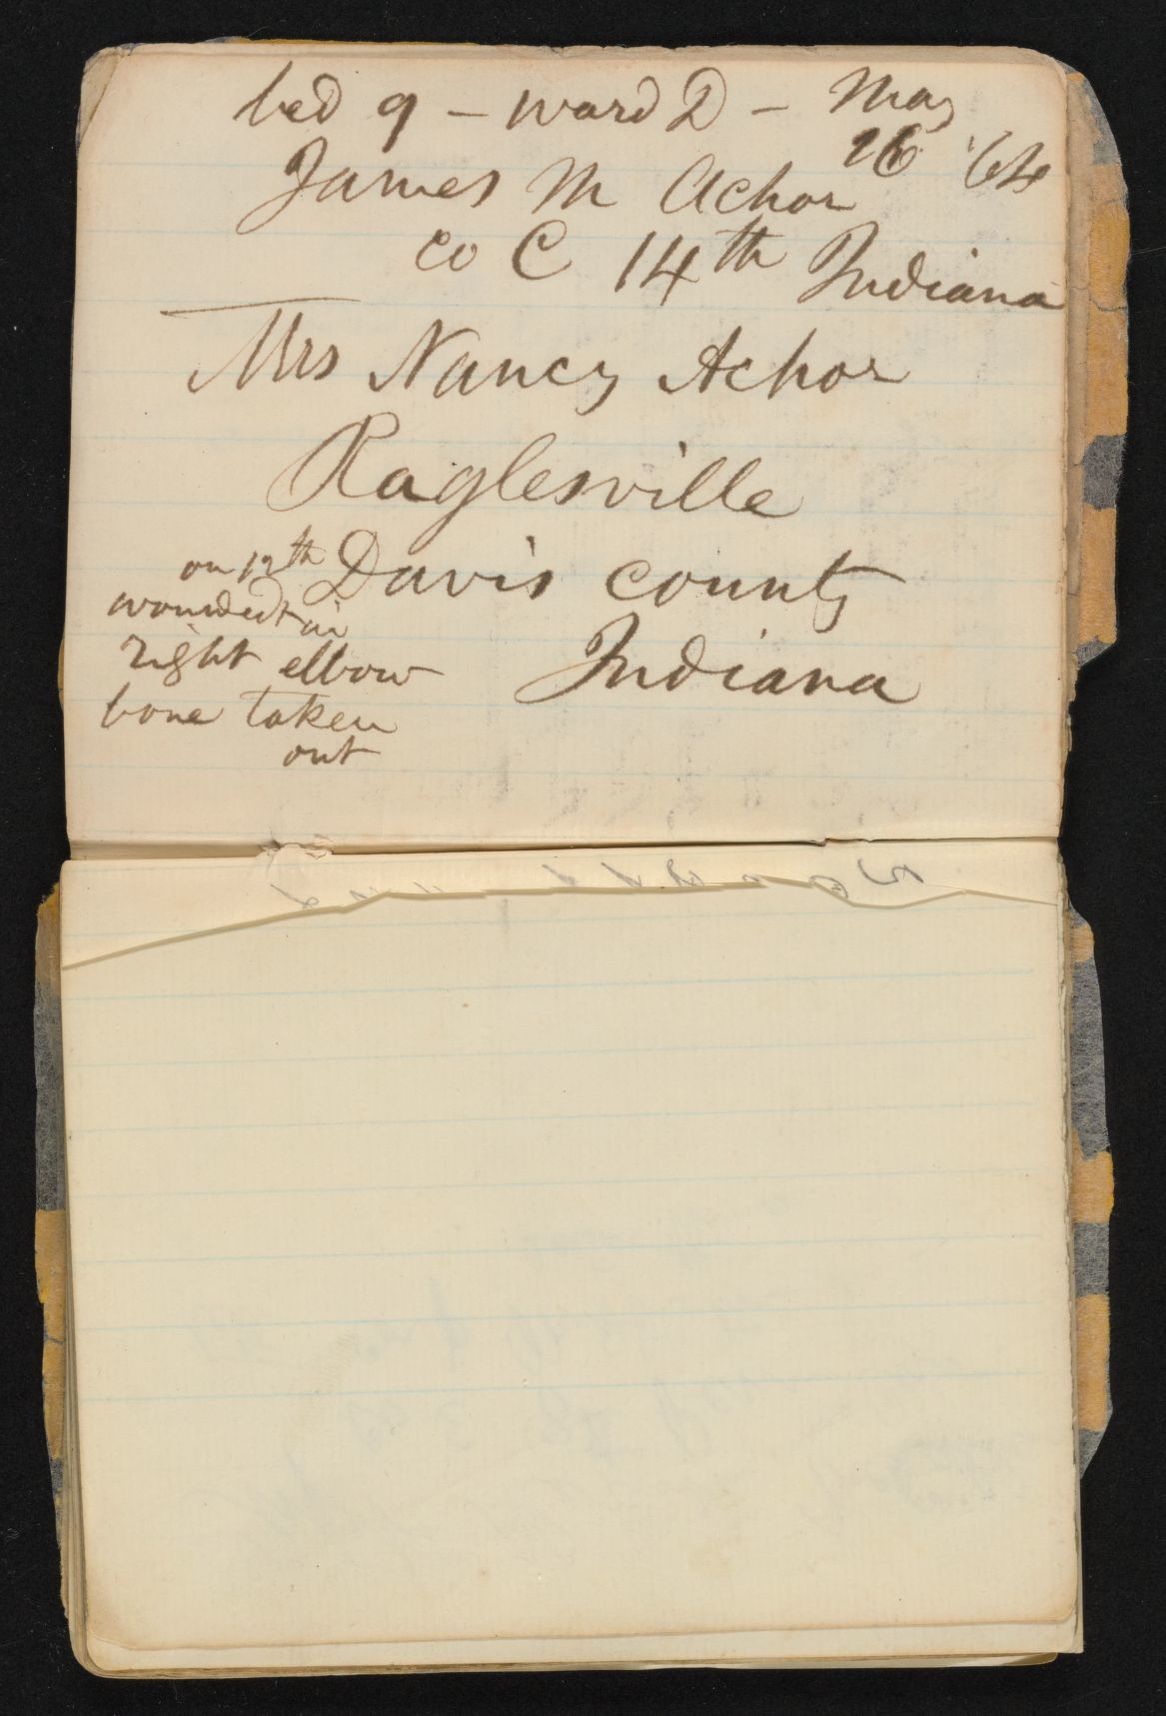 bed 9 – ward D – May
26 '64
James M Achor
co C 14th Indiana
Mrs Nancy Achor
Raglesville
Davis county
Indiana
on 12th
wounded in
right elbow
bone taken
out